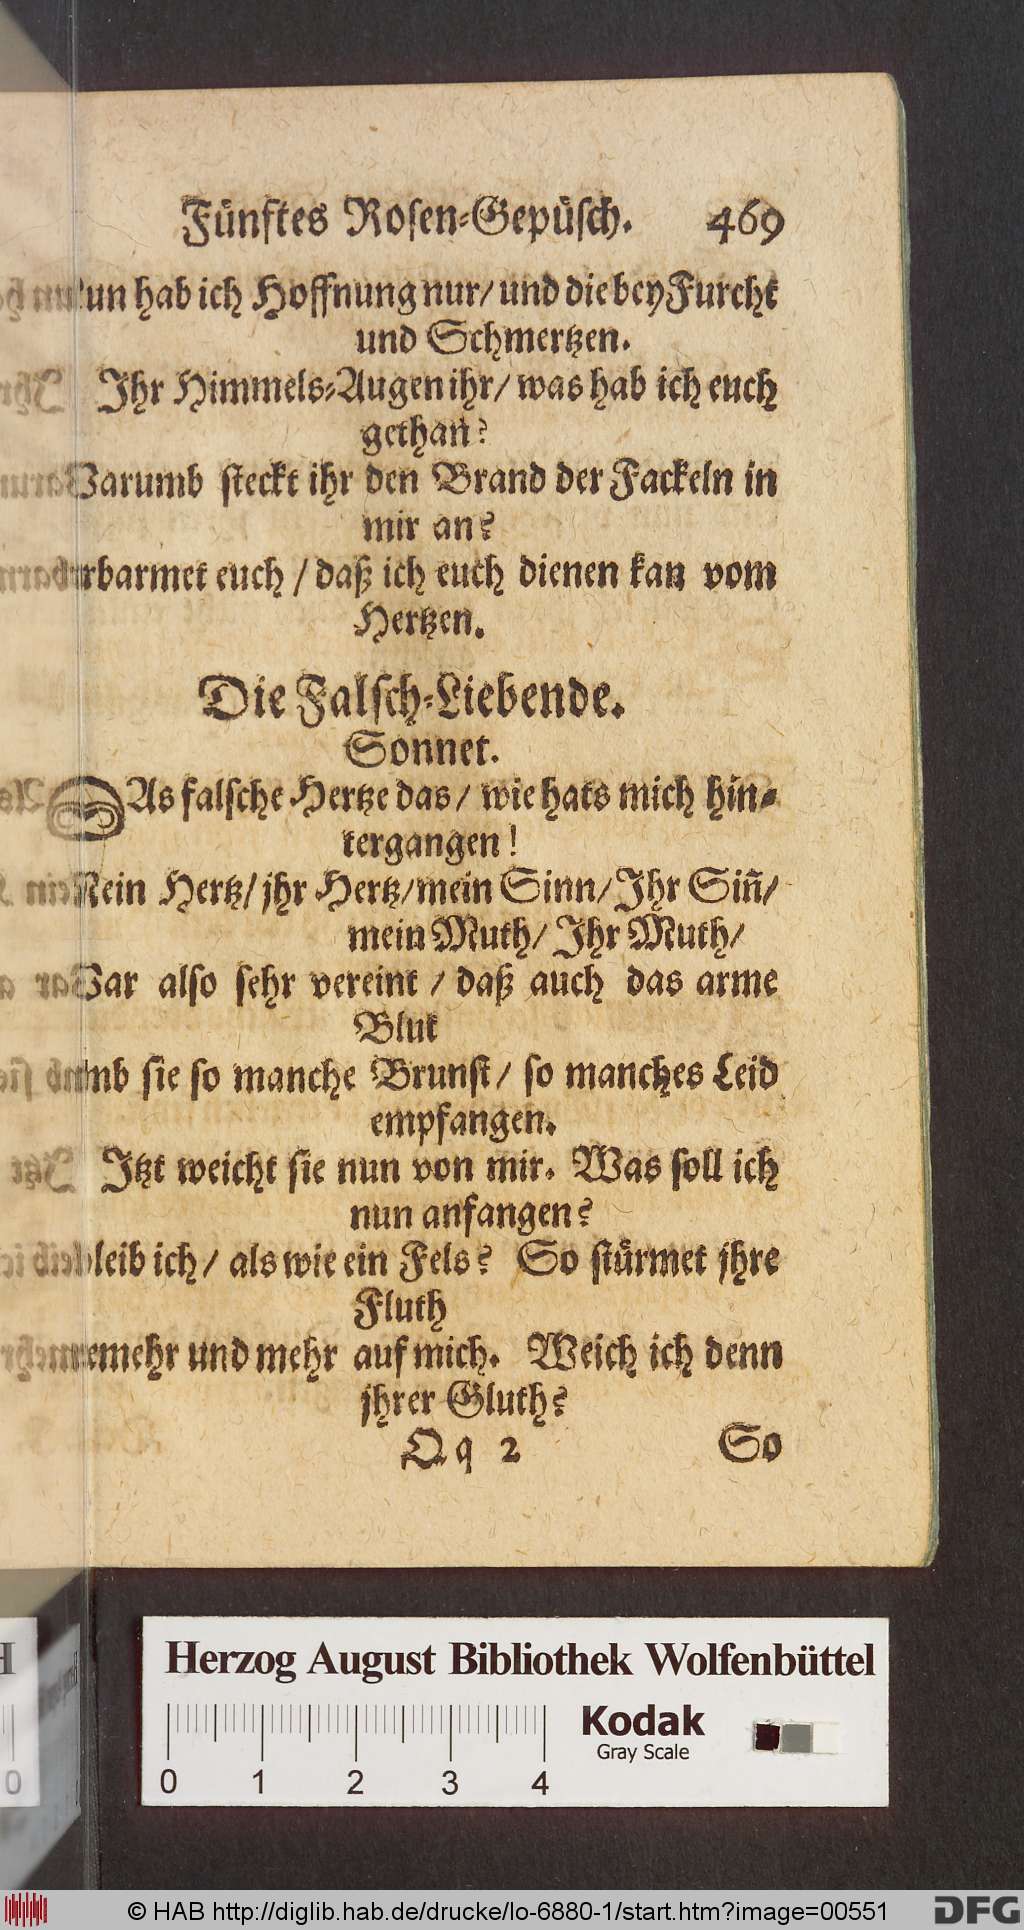 Fünftes Rosen-Gepüsch. 469
Nun hab ich Hoffnung nur/ und die bey Furcht
und Schmertzen.
Ihr Himmels-Augen ihr/ was hab ich euch
gethan?
Warumb steckt ihr den Brand der Fackeln in
mir an?
Erbarmet euch / daß ich euch dienen kan vom
Hertzen.
Die Falsch-Liebende.
Sonnet.
DAs falsche Hertze das / wie hats mich hin-
tergangen!
Mein Hertz/ jhr Hertz/mein Sinn/ Ihr Siñ/
mein Muth/ Ihr Muth/
War also sehr vereint / daß auch das arme
Blut
Umb sie so manche Brunst/ so manches Leid
empfangen.
Itzt weicht sie nun von mir. Was soll ich
nun anfangen?
Bleib ich/ als wie ein Fels? So stürmet jhre
Fluth
mehr und mehr auf mich. Weich ich denn
jhrer Gluth?
Qq 2 So
Herzog August Bibliothek Wolfenbüttel
Kodak
Gray Scale
0 1 2 3 4
© HAB http://diglib.hab.de/drucke/lo-6880-1/start.htm?image=00551
DFG